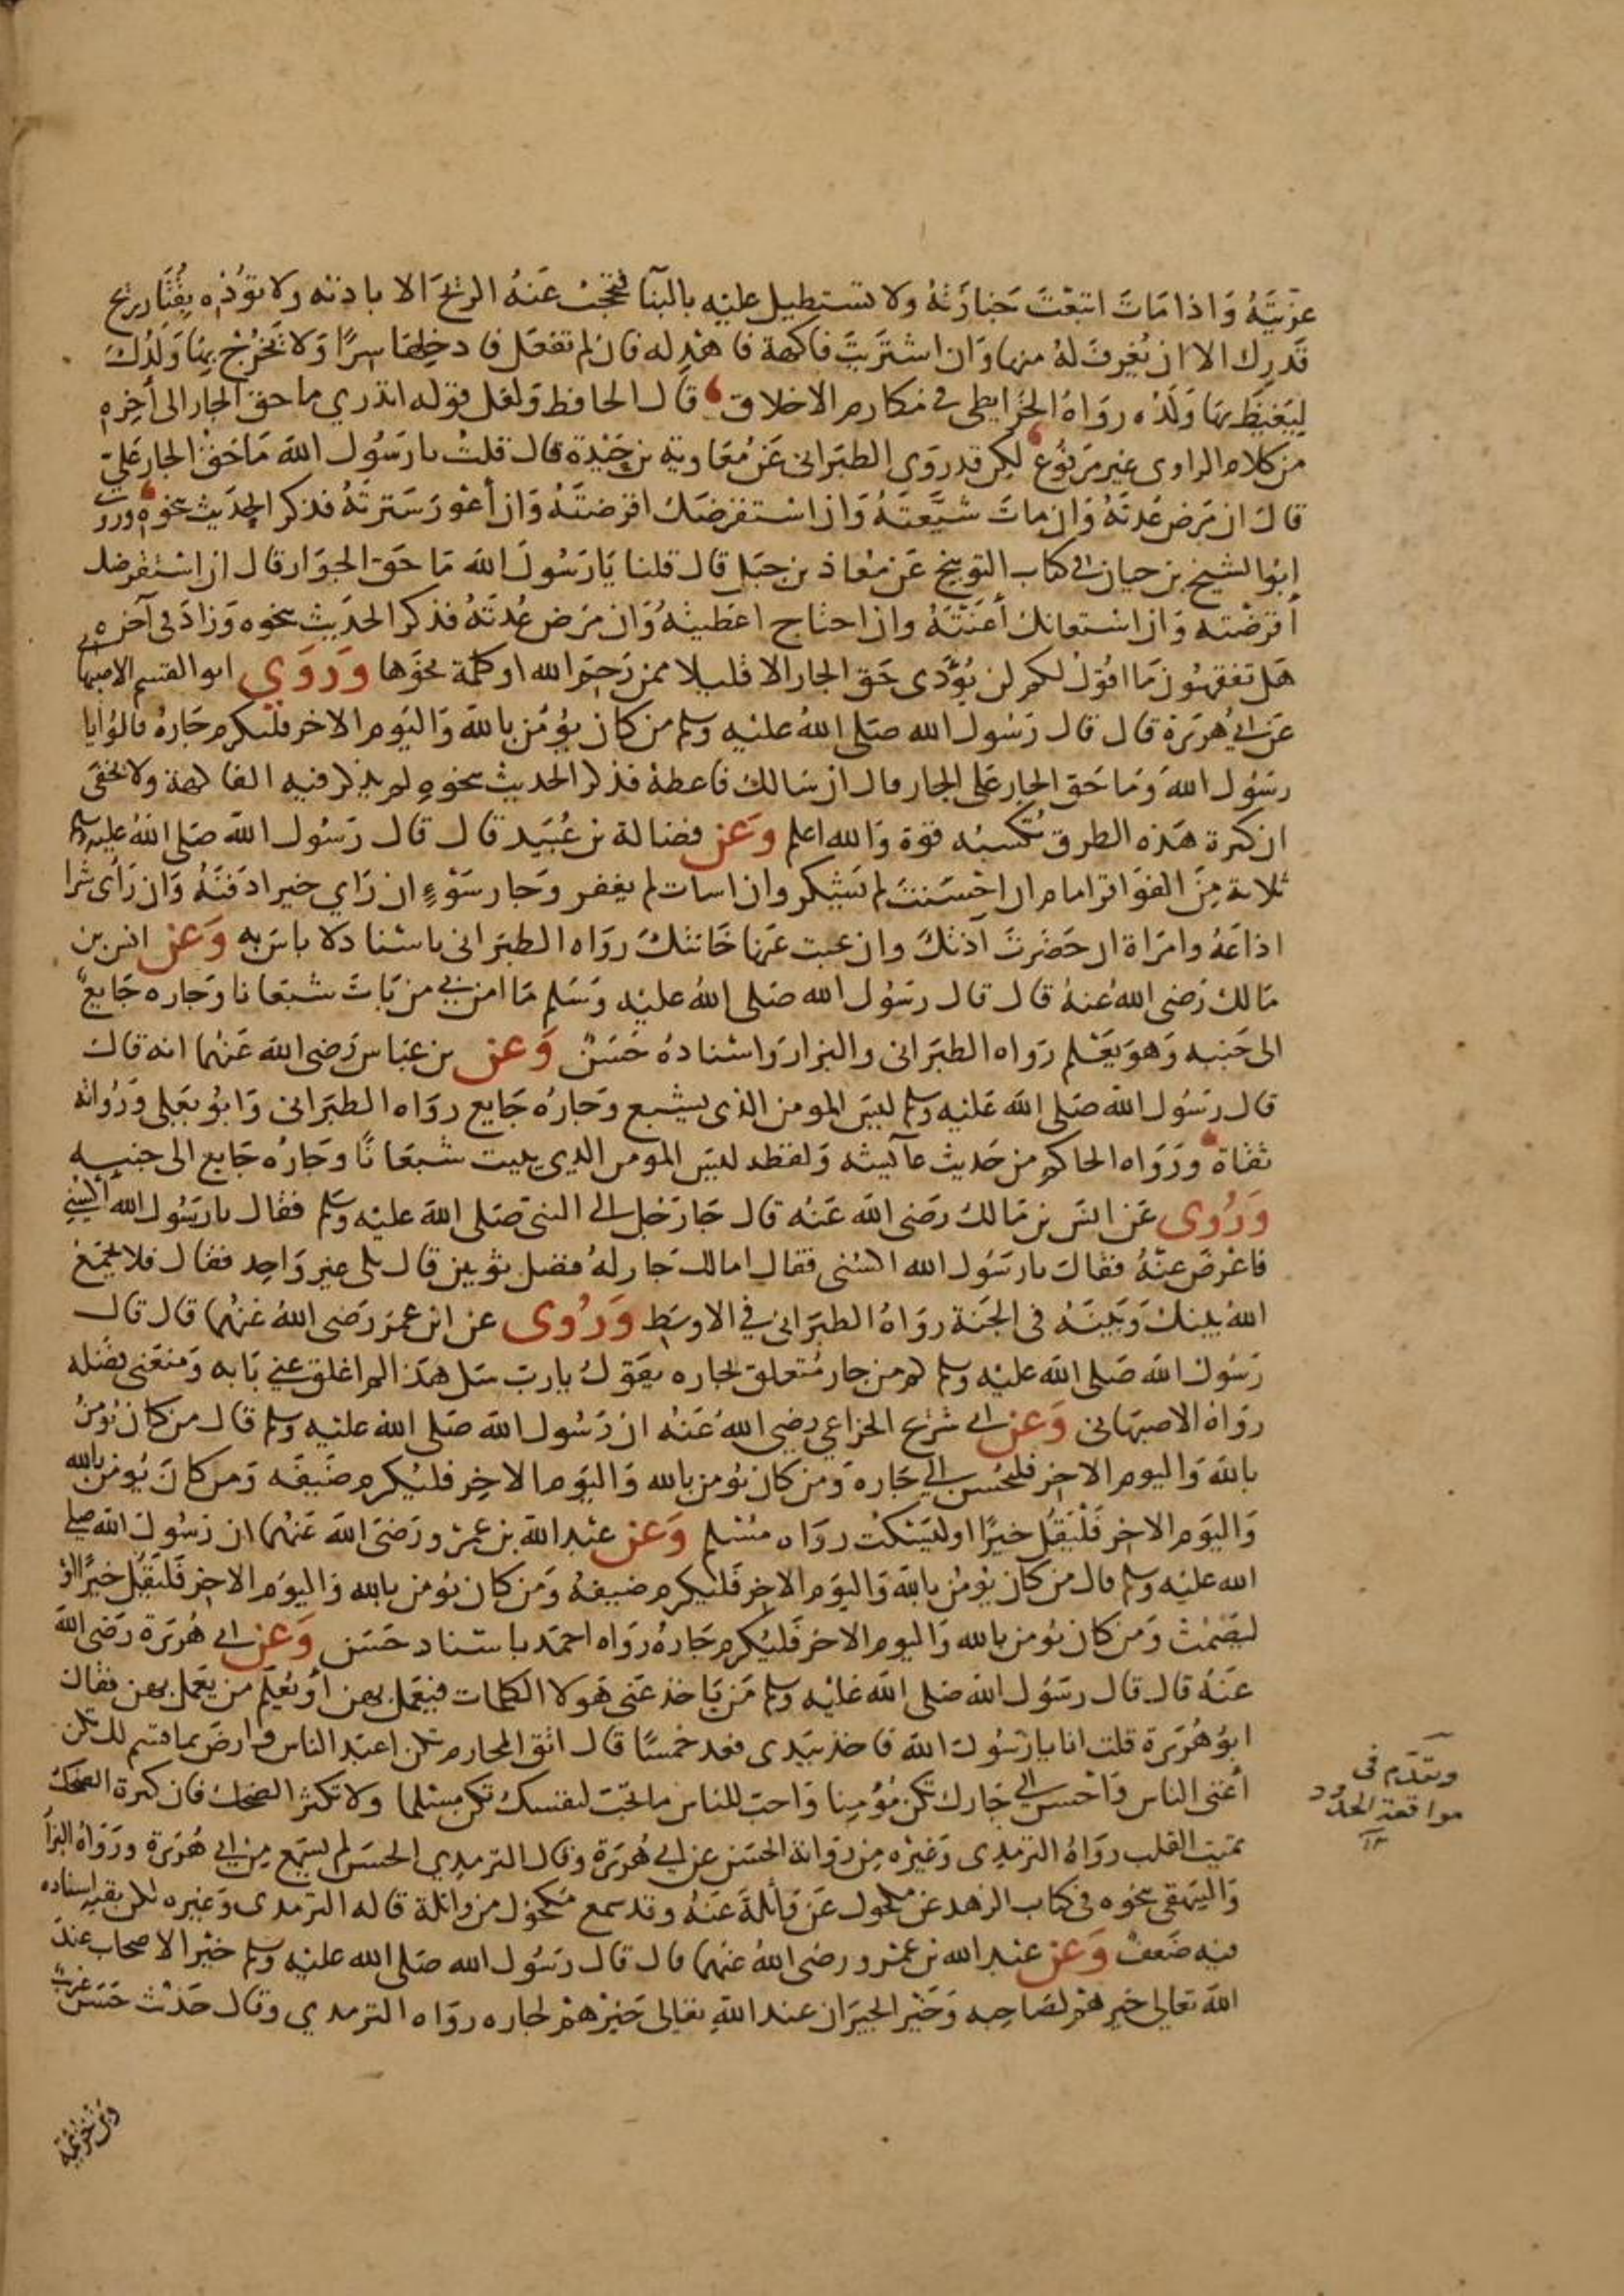 عزيته واذا مات اتبعت جنازته ولا تستطيل عليه بالبنا فتحجب عنه الريح الا باذنه ولا تؤذه بقتار ريح
قدرك الا ان تغرف له منها وان اشتريت فاكهة فاهد له فان لم تفعل فادخلها سرا ولا تخرج بها ولدك
ليغيظ بها ولده رواه الخرايطي في مكارم الاخلاق قال الحافظ ولعل قوله اتدري ما حق الجار الى أخره
من كلام الراوى غير مرفوع لكن قد روى الطبرانى عن معاوية بن حيدة قال قلت يا رسول الله ما حق الجار على
قال ان مرض عدته وان مات شيعته وان استقرضك اقرضته وان أعور سترته فذكر الحديث نحوه وروى
ابو الشيخ بن حيان في كتاب التوبيخ عن معاذ بن جبل قال قلنا يا رسول الله ما حق الجوار قال ان استقرضك
أقرضته وان استعانك أعنته وان احتاج اعطيته وان مرض عدته فذكر الحديث نحوه وزاد في آخره
هل تفقهون ما اقول لكم لن يؤدى حق الجار الا قليلا ممن رحم الله او كلمة نحوها وروي ابو القسم الاصبهاني
عن ابي هريرة قال قال رسول الله صلى الله عليه وسلم من كان يؤمن بالله واليوم الاخر فليكرم جاره قالوا يا
رسول الله وما حق الجار على الجار قال ان سالك فاعطه فذكر الحديث نحوه لم يذكر فيه الفاكهة ولا يخفى
ان كثرة هذه الطرق تكسبه قوة والله اعلم وعن فضالة بن عبيد قال قال رسول الله صلى الله عليه وسلم
ثلاثة من الفواقر امام ان احسنت لم يشكر وان اسات لم يغفر وجار سوء ان راي خيرا دفنه وان رأى شرا
اذاعه وامراة ان حضرت آذتك وان غبت عنها خانتك رواه الطبرانى باسناد لا باس به وعن انس بن
مالك رضى الله عنه قال قال رسول الله صلى الله عليه وسلم ما امن بي من بات شبعانا وجاره جايع
الى جنبه وهو يعلم رواه الطبرانى والبزار واسناده حسن وعن بن عباس رضى الله عنهما انه قال
قال رسول الله صلى الله عليه وسلم ليس المومن الذى يشبع وجاره جايع رواه الطبرانى وابو يعلى ورواته
ثقاة ورواه الحاكم من حديث عآيشه ولفظه ليس المومن الذي يبيت شبعانا وجاره جايع الى جنبه
وروى عن انس بن مالك رضى الله عنه قال جا رجل الى النبى صلى الله عليه وسلم فقال يا رسول الله اكسني
فاعرض عنه فقال يا رسول الله اكسنى فقال اما لك جار له فضل ثوبين قال بلى غير واحد فقال فلا يجمع
الله بينك وبينه فى الجنة رواه الطبرانى في الاوسط وروى عن ابن عمر رضى الله عنهما قال قال
رسول الله صلى الله عليه وسلم كم من جار متعلق بجاره يقول يا رب سل هذا لم اغلق عني بابه ومنعنى فضله
رواه الاصبهانى وعن ابي شريح الخزاعي رضى الله عنه ان رسول الله صلى الله عليه وسلم قال من كان يؤمن
بالله واليوم الاخر فليحسن الي جاره ومن كان يؤمن بالله واليوم الاخر فليكرم ضيفه ومن كان يؤمن بالله
واليوم الاخر فليقل خيرا او ليسكت رواه مسلم وعن عبد الله بن عمرو رضى الله عنهما ان رسول الله صلى
الله عليه وسلم قال من كان يؤمن بالله واليوم الاخر فليكرم ضيفه ومن كان يؤمن بالله واليوم الاخر فليقل خيرا او
ليصمت ومن كان يؤمن بالله واليوم الاخر فليكرم جاره رواه احمد باسناد حسن وعن ابي هريرة رضى الله
عنه قال قال رسول الله صلى الله عليه وسلم من ياخذ عنى هولا الكلمات فيعمل بهن أو يعلم من يعمل بهن فقال
ابو هريرة قلت انا يا رسول الله فاخذ بيدى فعد خمسا قال اتق المحارم تكن اعبد الناس وارض بما قسم لك تكن
أغنى الناس وأحسن الى جارك تكن مؤمنا واحب للناس ما تحب لنفسك تكن مسلما ولا تكثر الضحك فان كثرة الضحك
تميت القلب رواه الترمذى وغيره من رواية الحسن عن ابي هريرة وقال الترمذي الحسن لم يسمع من ابي هريرة ورواه البزار
والبيهقى نحوه فى كتاب الزهد عن مكحول عن واثلة عنه وقد سمع مكحول من واثلة قاله الترمذى وغيره لكن بقية اسناده
فيه ضعف وعن عبد الله بن عمرو رضى الله عنهما قال قال رسول الله صلى الله عليه وسلم خير الاصحاب عند
الله تعالى خيرهم لصاحبه وخير الجيران عند الله تعالى خيرهم لجاره رواه الترمذي وقال حديث حسن غريب
وتقدم فى
مواقعة الحدود
وبن خزيمة